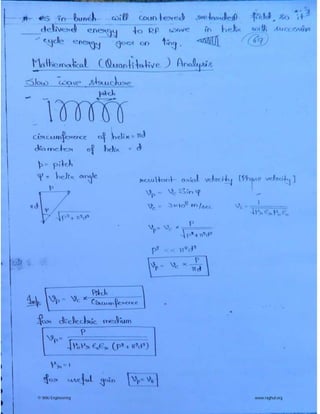 * es in bunch will countered retarded field, so it
delivered energy to RF wave in helix with successive
cycle energy goes on ↑ing.
67
Mathematical (Quantitative) Analysis
Slow wave structure
pitch
circumference of helix = πd
diameter of helix = d
p = pitch
ψ = helix angle
resultant axial velocity [Phase velocity]
P
πd
ψ
√p²+π²d²
Vp = Vc sin ψ
Vc = 3×10⁸ m/sec
Vp = Vc × P / √p²+π²d²
p² << π²d²
Vp = Vc × P / πd
Imp. Vp = Vc × Pitch / Circumference
for dielectric medium
Vp = P / √μ₀μr ε₀εr (p²+π²d²)
μr = 1
for useful gain Vp = V₀
© Wiki Engineering
www.raghul.org